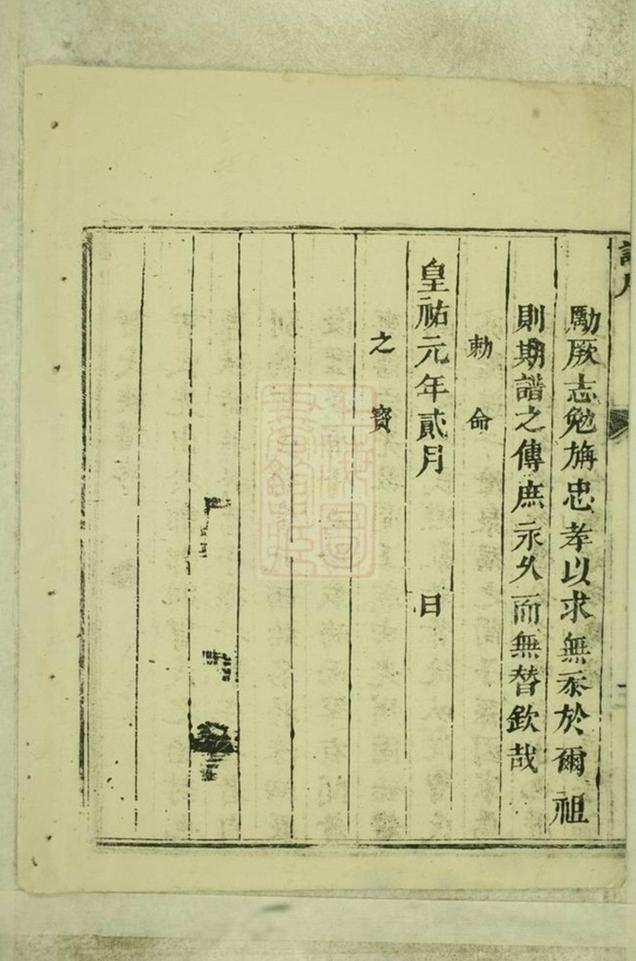 勵厥志勉旃忠孝以求無忝於爾祖
則期譜之傳庶永久而無替欽哉
勅命
皇祐元年貳月 日
之寳